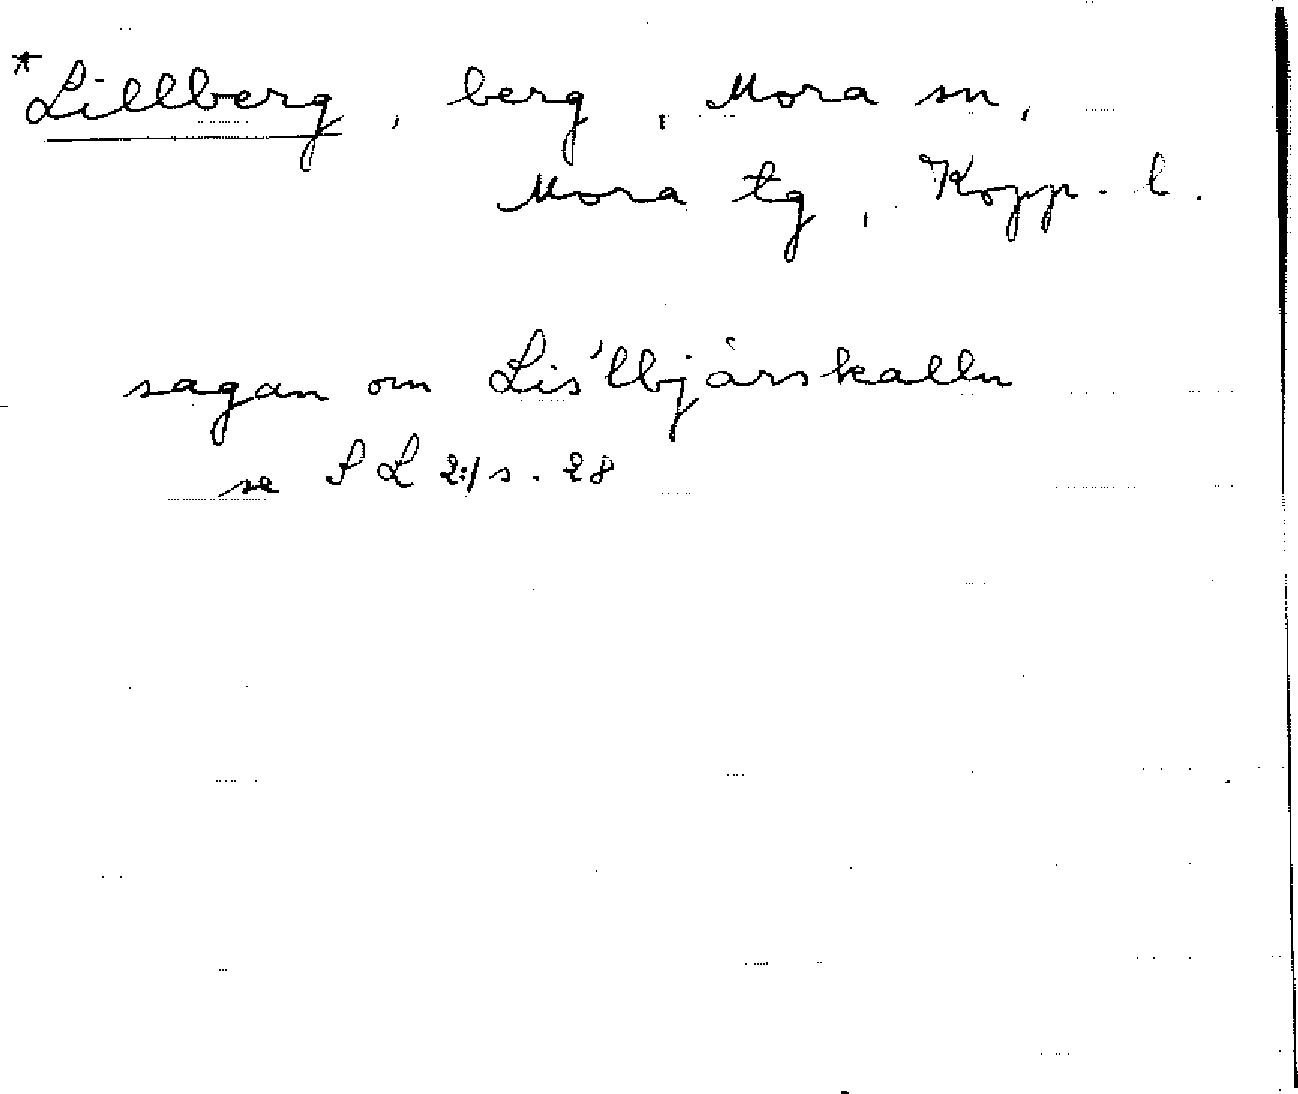 *Lillberg, berg, Mora sn,
Mora tg, Kopp. l.
sagan om Lis'llbjårskalln
se SL 2:1 s. 28